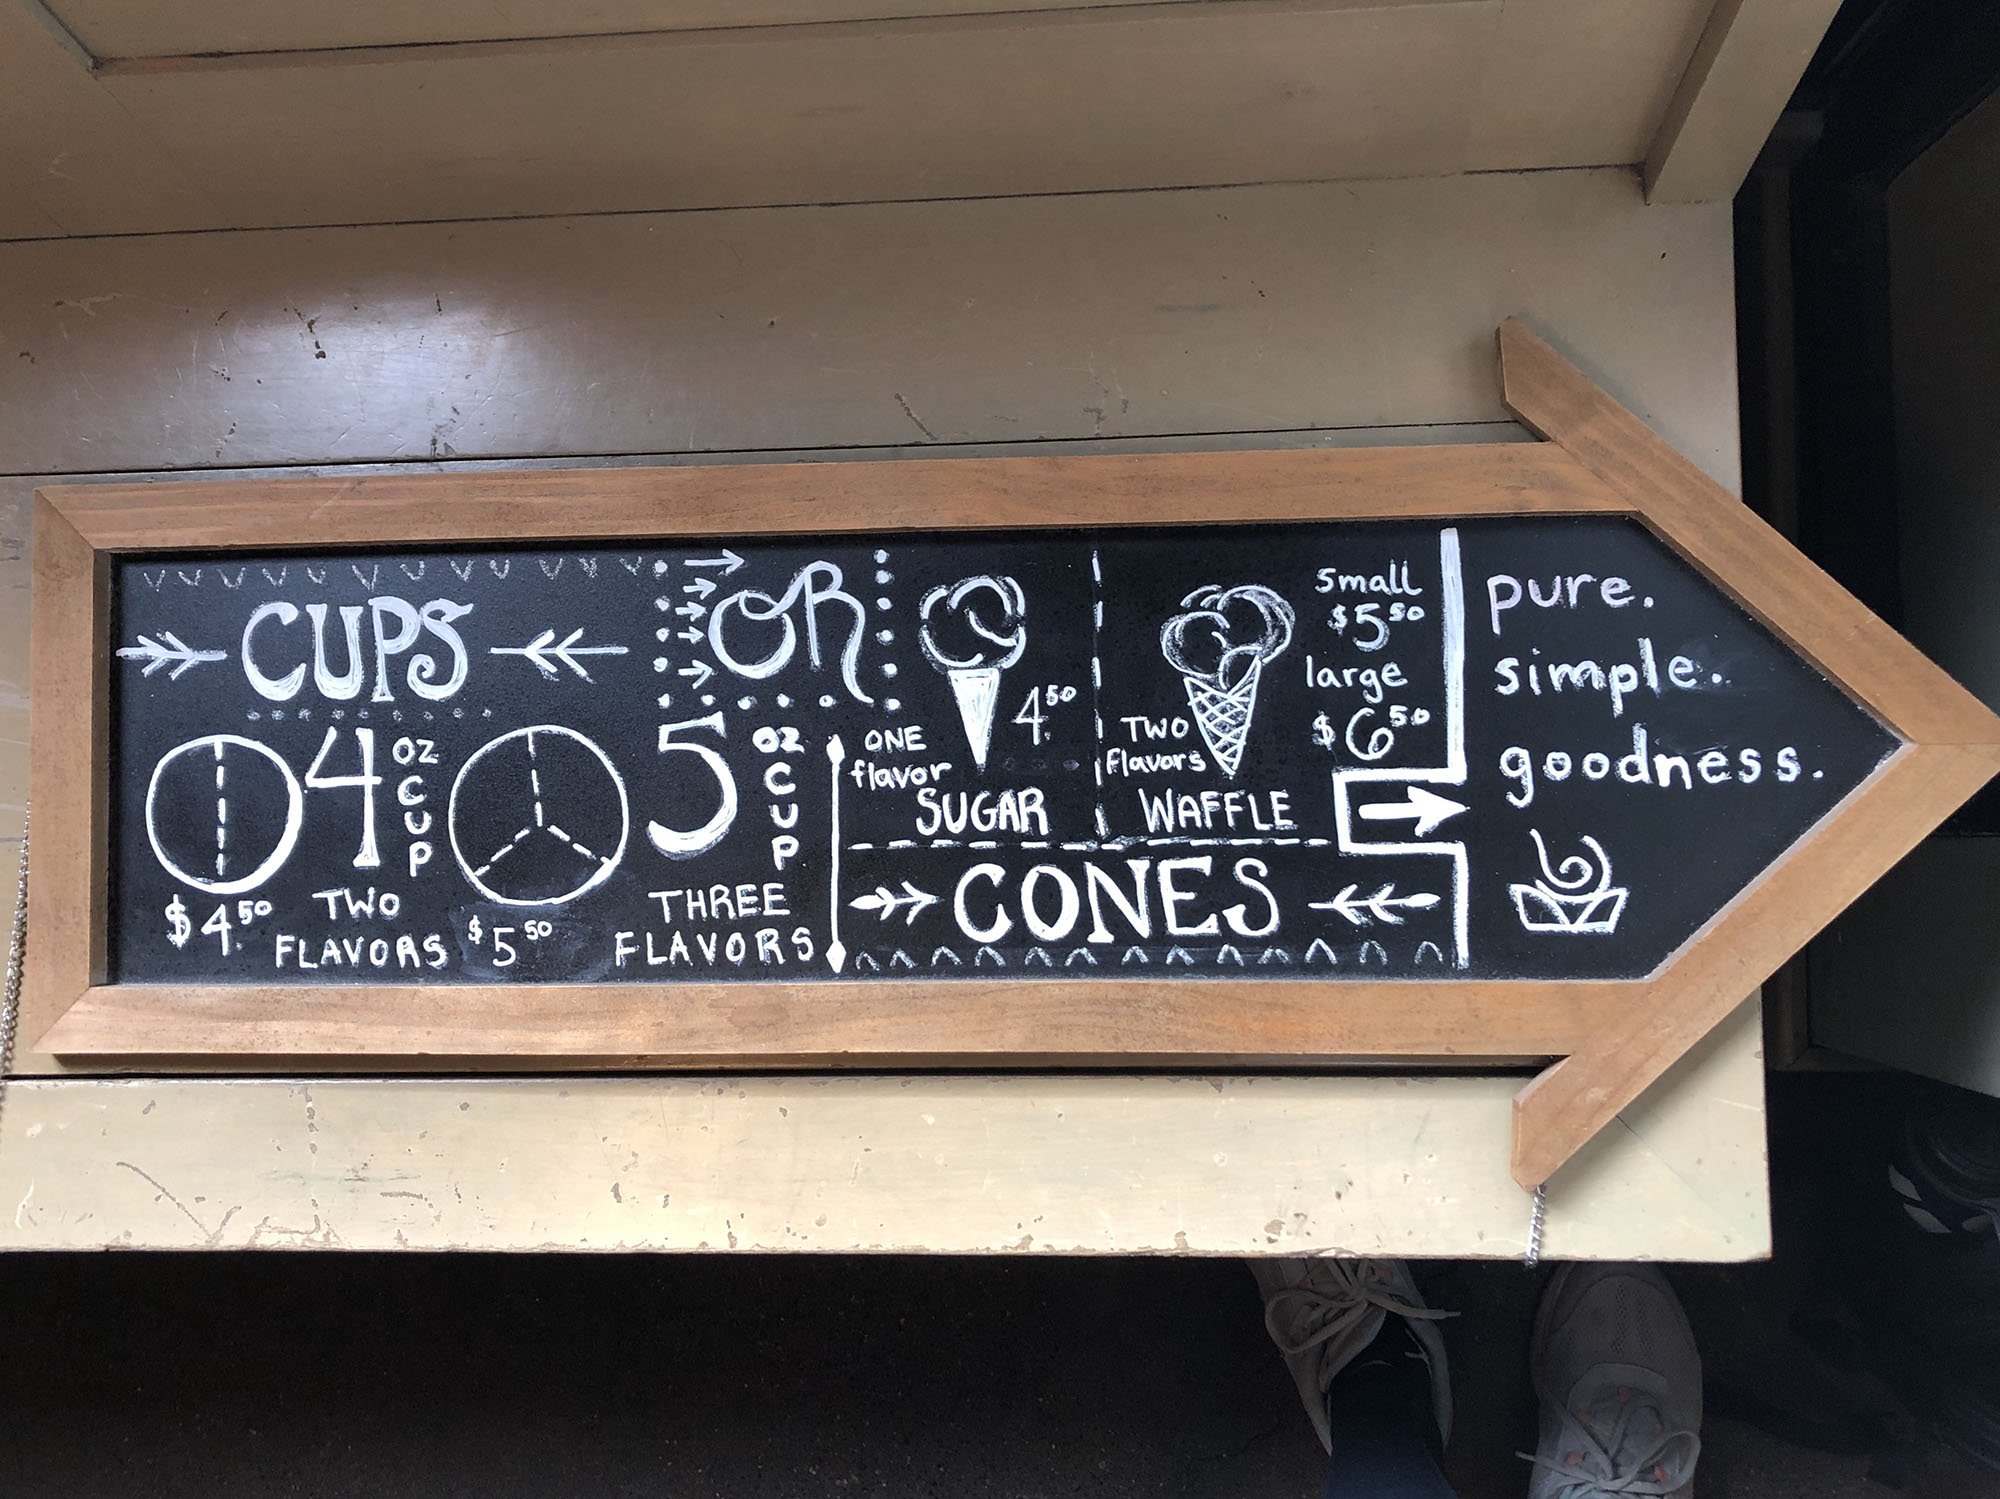 CUPS
4 OZ CUP
$4.50
TWO
FLAVORS
5 OZ CUP
$5.50
THREE
FLAVORS
OR
ONE
flavor
4.50
SUGAR
TWO
Flavors
WAFFLE
small
$5.50
large
$6.50
CONES
pure.
simple.
goodness.